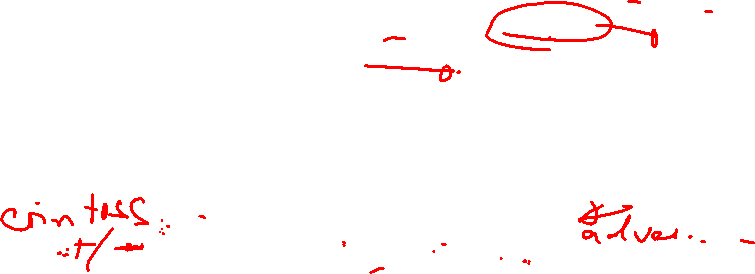 coin toss
+/-
adver..